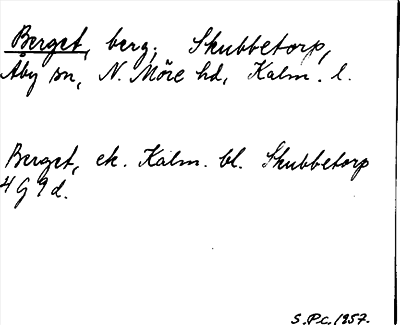 Berget, berg, Skubbetorp,
Åby sn, N. Möre hd, Kalm. l.
Berget, ek. Kalm. bl. Skubbetorp
4 G 9 d.
S.P.C. 1957.